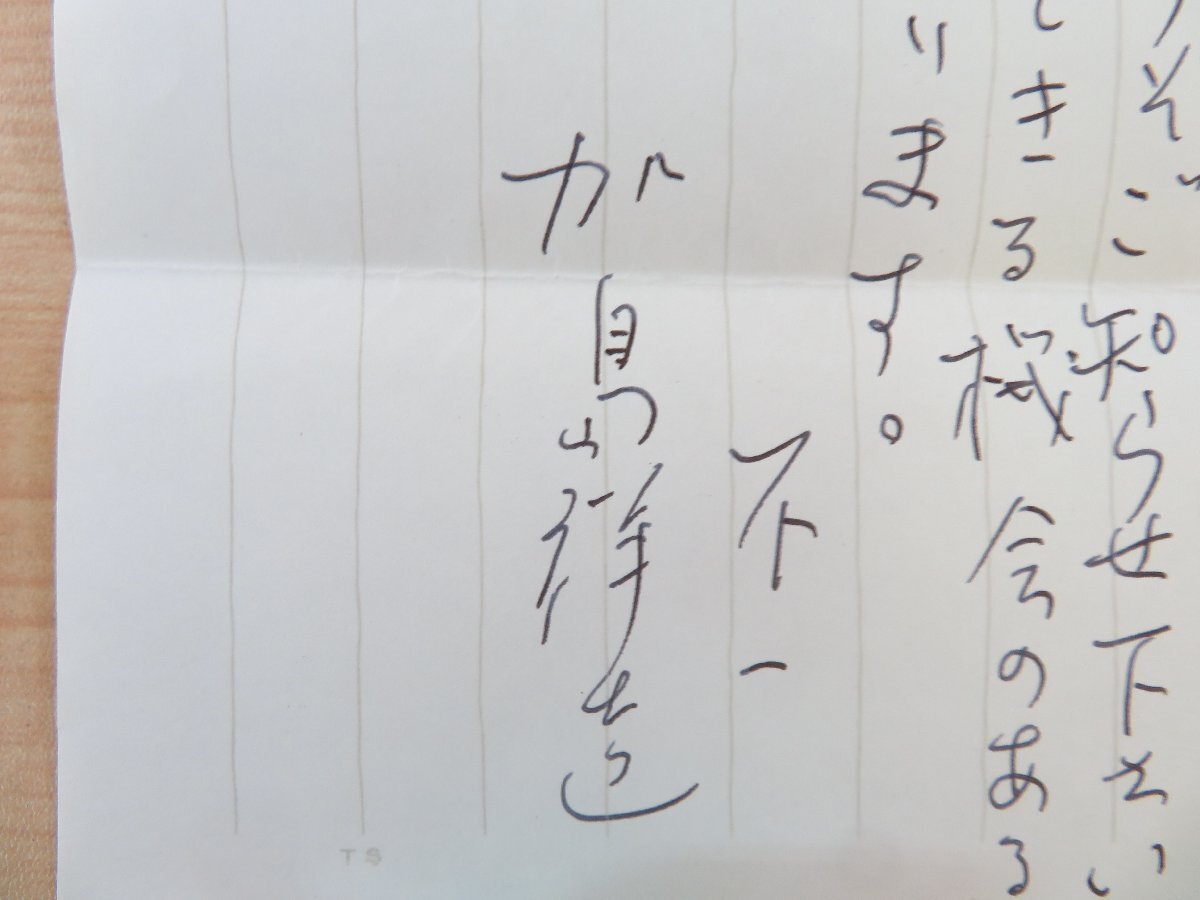 うぞご知らせ下さい
できる機会のある
ります。
不一
加島祥造
TS